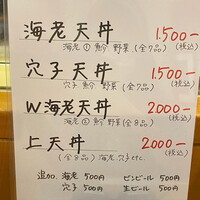 海老天丼 1.500-
海老① 魚介 野菜(全7品) (税込)
穴子天丼 1.500-
穴子 魚介 野菜(全7品) (税込)
W海老天丼 2000-
海老② 魚介 野菜(全8品) (税込)
上天丼 2000-
(全8品) 海老 穴子etc. (税込)
追加 海老 500円 ビンビール 500円
穴子 500円 生ビール 500円